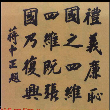 禮義廉恥
國之四維
四維既張
國乃復興
蔣中正題